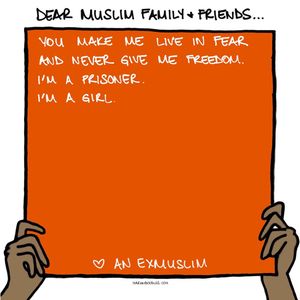 DEAR MUSLIM FAMILY + FRIENDS...
YOU MAKE ME LIVE IN FEAR
AND NEVER GIVE ME FREEDOM.
I'M A PRISONER.
I'M A GIRL.
♡ AN EXMUSLIM